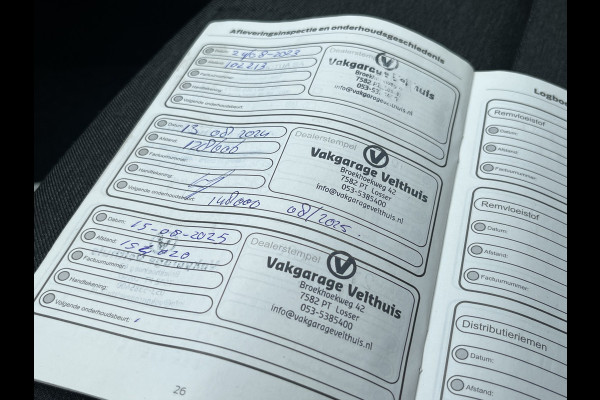 Afleveringsinspectie en onderhoudsgeschiedenis
Datum:
08-2023
Afstand:
Factuurnummer:
Handtekening:
Volgende onderhoudsbeurt:
Dealerstempel
Vakgarage
7582
053-53
info@vakgarage
Datum: 15-08/2024
Afstand: 128000
Factuurnummer:
Handtekening:
Volgende onderhoudsbeurt: 148000 08/2025.
Dealerstempel
Vakgarage Velthuis
Broekhoekweg 42
7582 PT Losser
053-5385400
info@vakgaragevelthuis.nl
Datum: 15-08-2025
Afstand:
Factuurnummer:
Handtekening:
Volgende onderhoudsbeurt:
Dealerstempel
Vakgarage Velthuis
Broekhoekweg 42
7582 PT Losser
053-5385400
info@vakgaragevelthuis.nl
26
Remvloeistof
Datum:
Afstand:
Factuurnummer:
Remvloeistof
Datum:
Afstand:
Factuurnummer:
Distributieriemen
Datum:
Afstand: